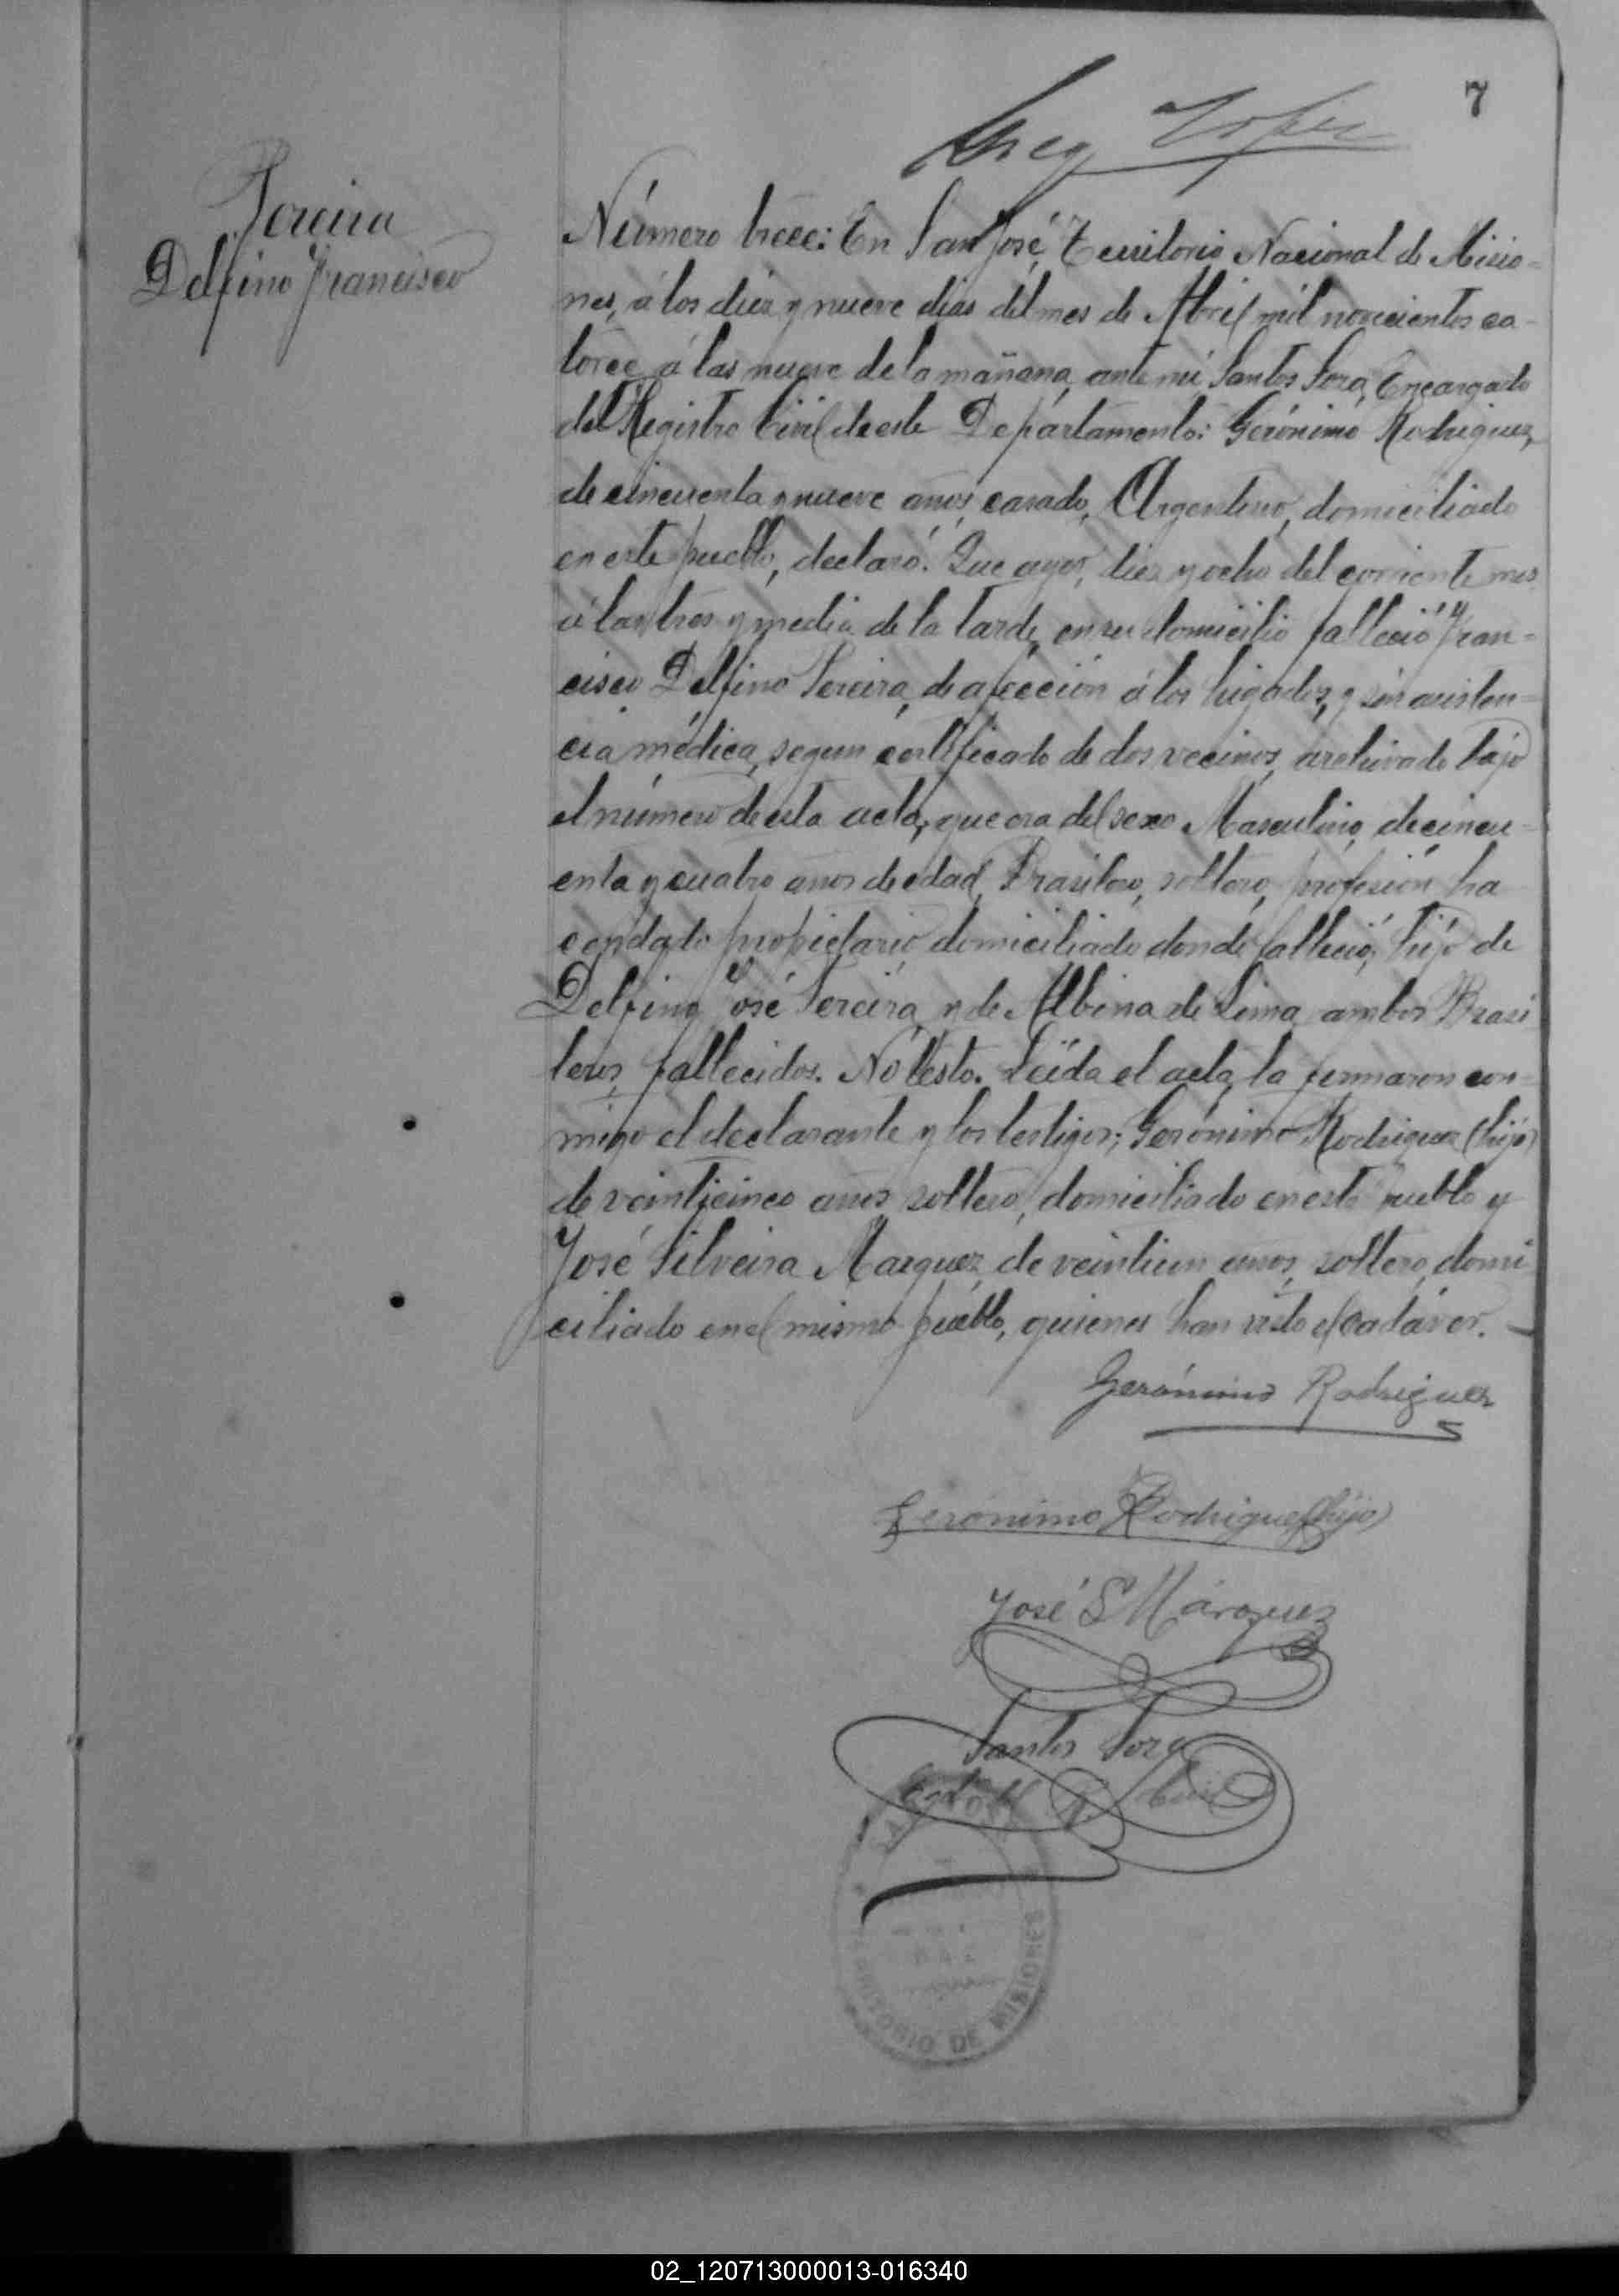 7
Pereira
Delfino Francisco
Número trece: En San José, Territorio Nacional de Misio-
nes, á los diez y nueve dias del mes de Abril mil novecientos ca-
torce, á las nueve de la mañana, ante mi Santos Sora, Encargado
del Registro Civil de este Departamento: Gerónimo Rodriguez,
de cincuenta y nueve años, casado, Argentino, domiciliado
en este pueblo, declaró: Que ayer, diez y ocho del corriente mes
á las tres y media de la tarde, en su domicilio falleció Fran-
cisco Delfino Pereira, de afección á los higados, y sin asisten-
cia médica, segun certificado de dos vecinos, archivado bajo
el número de esta acta, que era del sexo Masculino, de cincu-
enta y cuatro años de edad, Brasilero, soltero, profesión ha
cendado propietario, domiciliado donde falleció, hijo de
Delfino José Pereira, y de Albina de Lima, ambos Brasi
leros, fallecidos. No testo. Leída el acta, la firmaron con-
migo el declarante y los testigos; Gerónimo Rodriguez (hijo)
de veinticinco años, soltero, domiciliado en este pueblo y
José Silveira Marquez, de veintiun años, soltero, domi
ciliado en el mismo pueblo, quienes han visto el cadáver.
Gerónimo Rodriguez
Geronimo Rodriguez (hijo)
José S Márquez
Santos Sora
TERRITORIO DE MISIONES
02_120713000013-016340